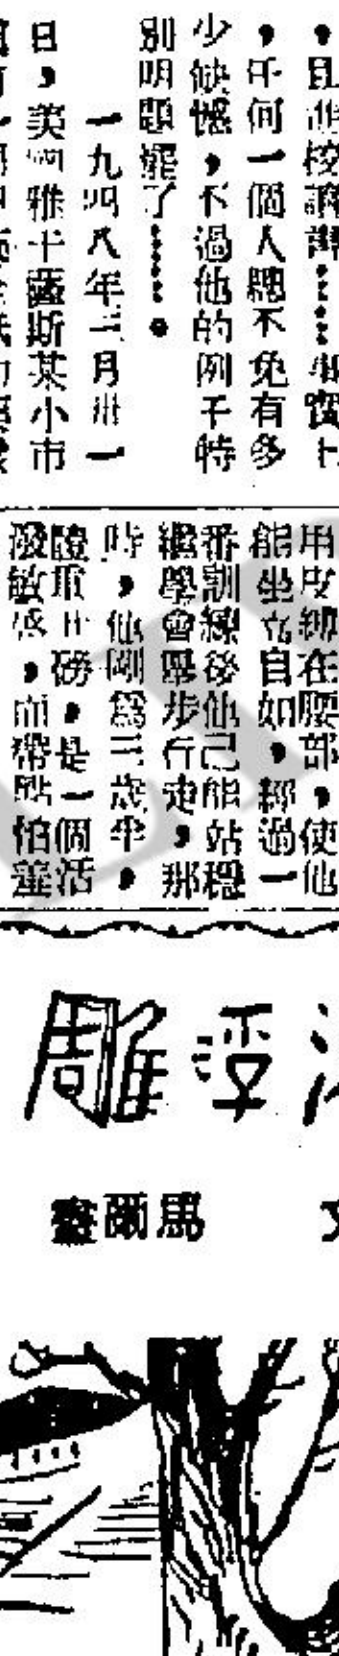 ，任何一個人總不免有多
少缺憾，不過他的例子特
別明顯罷了……。
一九四八年三月卅一
日，美國雅干薩斯某小市
用皮綁在腰部，使他
能坐立自如，經過一
番訓練後他已能站穩
繼學會舉步行走，那
時，他剛為三歲半，
體重廿磅，是一個活
潑敏感，而帶點怕羞
浮雕
馬爾畫
文